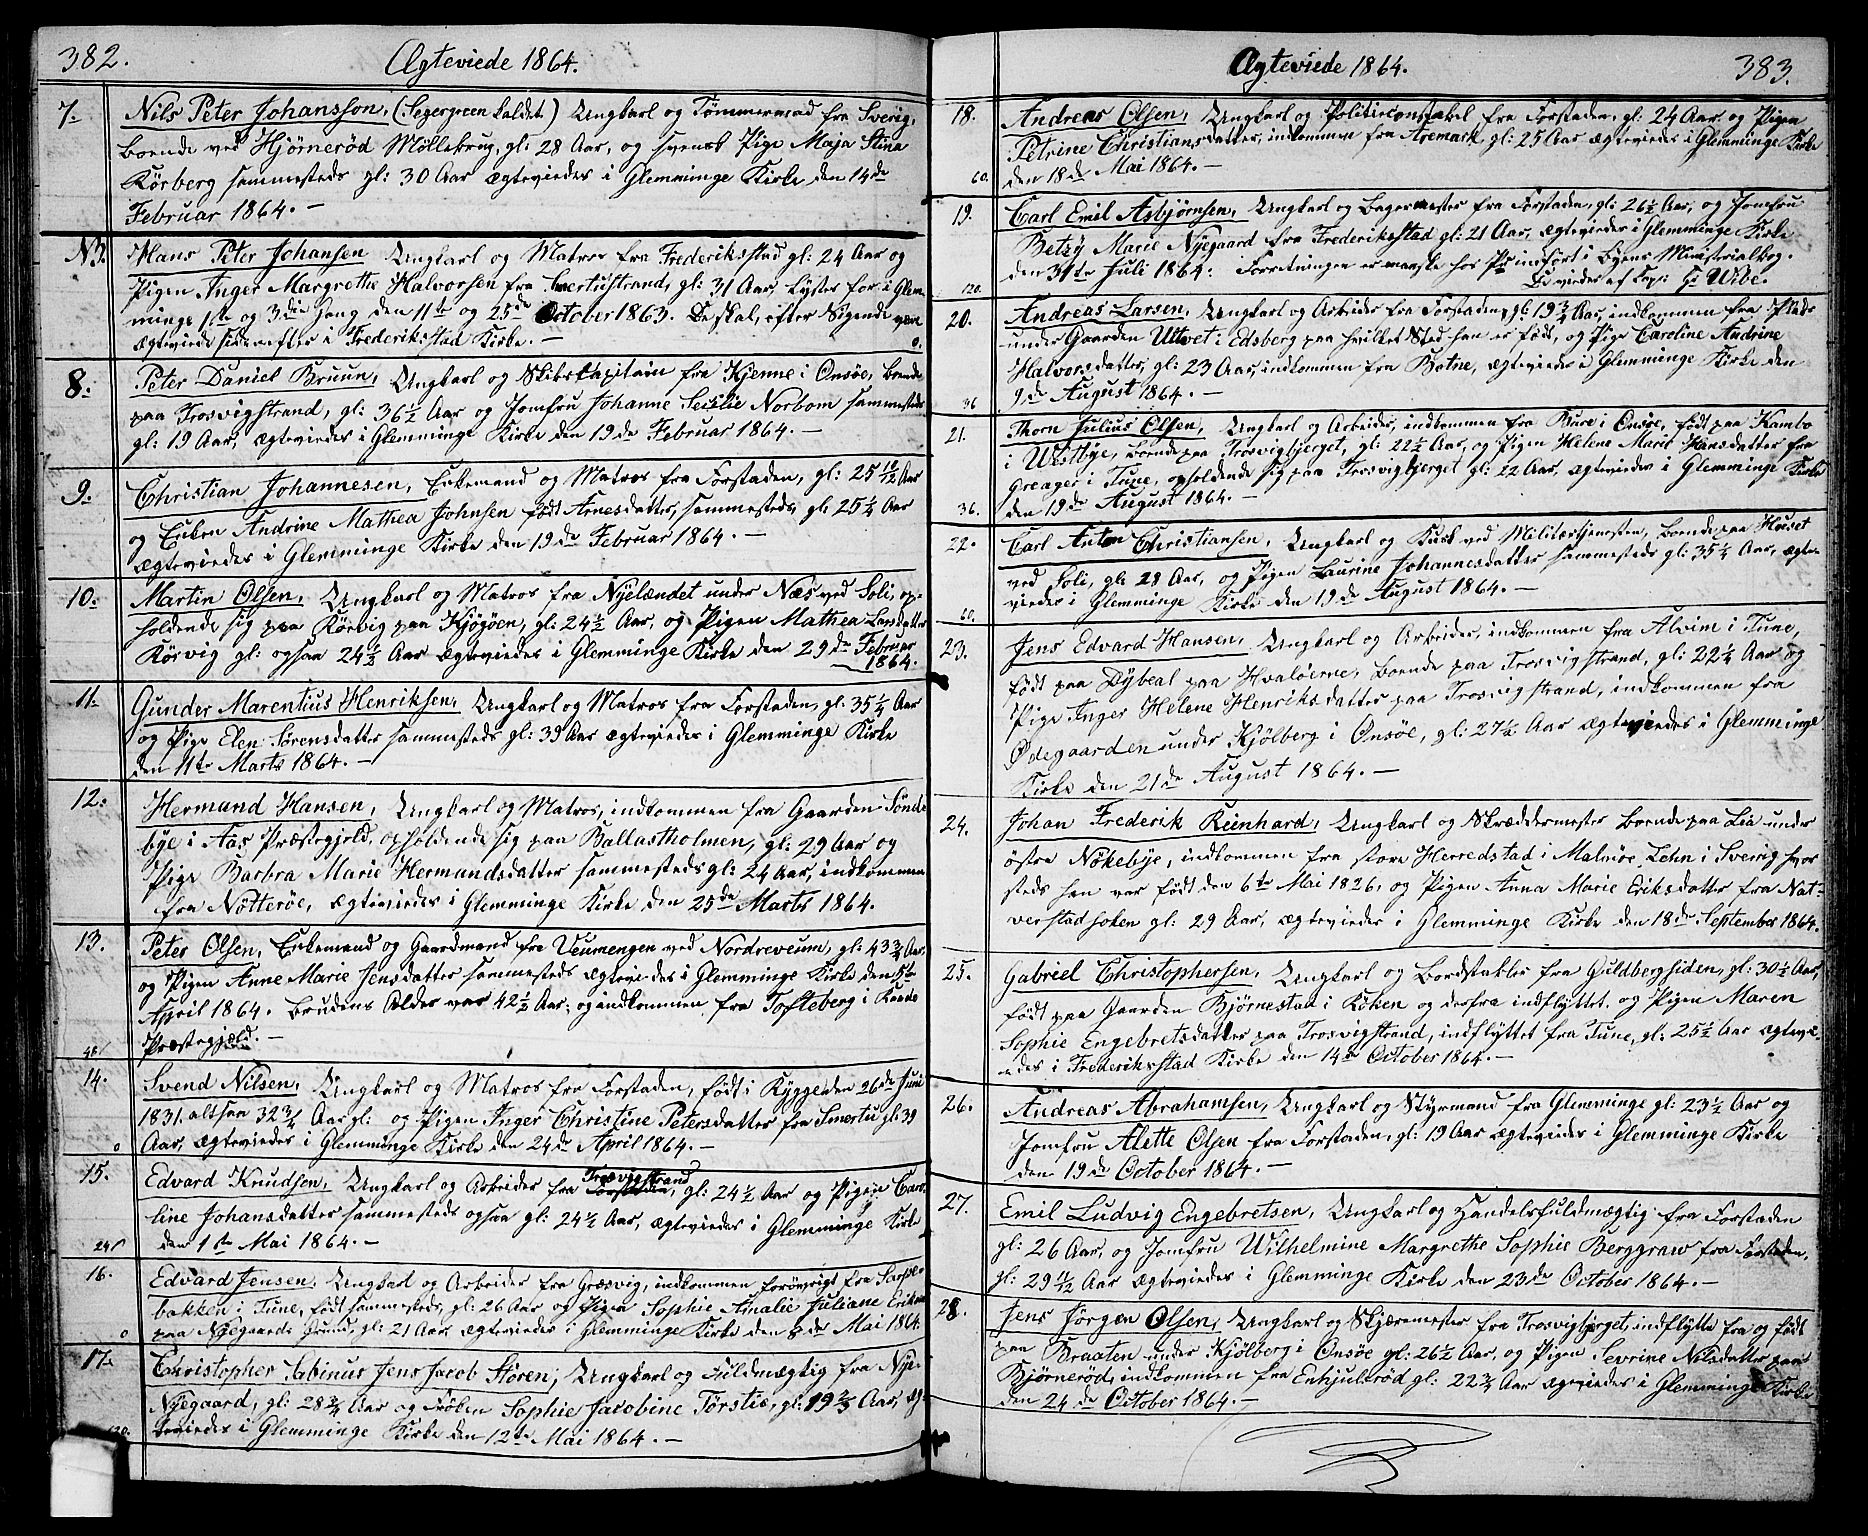 382.
Ægteviede 1864.
7. Nils Peter Johansson, (Segergreen kaldet) Ungkarl og Tømmermand fra Sverig,
boende ved Hjørnerød Møllekrug, gl: 28 Aar, og svensk Pige Maja Stina
Körberg sammesteds gl: 30 Aar ægteviedes i Glemminge Kirke den 14de
Februar 1864. —
N3. Hans Peter Johansen Ungkarl og Matros fra Frederiksstad gl: 24 Aar og
Pigen Inger Margrethe Halvorsen fra Smertustrand, gl: 31 Aar, lyster for i Glem-
minge 1ste og 3die Gang den 11te og 25de October 1863. De skal, efter Sigende være
ægteviede sidenefter i Frederikstad Kirke. — 0.
8. Peter Daniel Bruun, Ungkarl og Skibskapitain fra Kjenne i Onsøe, boende
paa Trosvigstrand, gl: 36½ Aar og Jomfru Johanne Secilie Norbom sammesteds
gl: 19 Aar, ægteviedes i Glemminge Kirke den 19de Februar 1864. —
9. Christian Johannesen, Enkemand og Matros fra Forstaden, gl: 25 10/12 Aar
og Enken Andrine Mathea Johnsen født Arnesdatter, sammesteds, gl: 25¼ Aar
ægteviedes i Glemminge Kirke den 19de Februar 1864. —
10. Martin Olsen, Ungkarl og Matros fra Nyelændet under Næs ved Soli, op-
holdende sig paa Körvig paa Kjøgøen, gl: 24½ Aar, og Pigen Mathea Larsdatter
Körvig gl: ogsaa 24½ Aar ægteviedes i Glemminge Kirke den 29de Februar
1864.
11. Gunder Marentius Henriksen, Ungkarl og Matros fra Forstaden, gl: 35¼ Aar
og Pige Elen Sørensdatter sammesteds gl: 39 Aar ægteviedes i Glemminge Kirke
den 11te Marts 1864. —
12. Hermand Hansen, Ungkarl og Matros, indkommen fra Gaarden Sønde
bye i Aas Præstegjeld, opholdende sig paa Ballastholmen, gl: 29 Aar og
Pige Barbra Marie Hermandsdatter sammesteds gl: 24 Aar, indkommen
fra Nötterøe, ægteviedes i Glemminge Kirke den 25de Marts 1864.
13. Peter Olsen, Enkemand og Gaardmand fra Veumengen ved Nordreveum, gl: 43¾ Aar,
og Pigen Anne Marie Jensdatter sammesteds ægteviedes i Glemminge Kirke den 5te
April 1864. Brudens Alder var 42½ Aar; og indkommen fra Tofteberg i Raade
48 Præstegjeld. —
14. Svend Nilsen, Ungkarl og Matros fra Forstaden, født i Rygge den 26de Juni
1831. altsaa 32¾ Aar gl: og Pigen Inger Christine Petersdatter fra Smertu gl: 39
0 Aar, ægteviedes i Glemminge Kirke den 24de April 1864. —
15. Edvard Knudsen, Ungkarl og Arbeider fra Forstaden, Trosvigstrand gl: 24½ Aar og Pigen Caro-
line Johansdatter sammesteds ogsaa gl: 24½ Aar, ægteviedes i Glemminge Kirke
24 den 1ste Mai 1864. —
16. Edvard Jensen, Ungkarl og Arbeider fra Græsvig, indkommen forøvrigt fra Sarpe-
bakken i Tune, født sammesteds, gl: 26 Aar og Pigen Sophie Amalie Juliane Eriksen
0 paa Nyegaards Grund, gl: 21 Aar ægteviedes i Glemminge Kirke den 8de Mai 1864
17. Christopher Sabinus Jens Jacob Støren, Ungkarl og Fuldmægtig fra Nye-
Nyegaard, gl: 28¾ Aar og Frøken Sophie Jacobine Tørstie, gl: 19⅔ Aar, æg-
120. teviedes i Glemminge Kirke den 12te Mai 1864. —
Ægteviede 1864.
383.
18. Andreas Olsen, Ungkarl og Politiconstabel fra Forstaden, gl: 24 Aar, og Pigen
Petrine Christiansdatter, indkommen fra Aremark gl: 25 Aar ægteviedes i Glemminge Kirke
60. den 18de Mai 1864. —
19. Carl Emil Asbjørnsen, Ungkarl og Bagermester fra Forstaden, gl: 26½ Aar, og Jomfru
Betzy Marie Nyegaard fra Frederiksstad gl: 21 Aar, ægteviedes i Glemminge Kirke
den 31te Juli 1864. Forretningen er maaske hos Pr: indført i Byens Ministerialbog.
120. De viedes af Cap: Hr Wibe.
20. Andreas Larsen, Ungkarl og Arbeider fra Forstaden, gl: 19¾ Aar, indkommen fra Plads
under Gaarden Utvet i Edsberg paa hvilket Sted han er født, og Pige Caroline Andrine
Halvorsdatter, gl: 23 Aar, indkommen fra Botne, ægteviedes i Glemminge Kirke den
36 9de August 1864. —
21. Thorn Julius Olsen, Ungkarl og Arbeider, indkommen fra Bure i Onsøe, født paa Kambo
i Westbye, boende paa Trosvigbjerget, gl: 22½ Aar, og Pigen Helene Marie Hansdatter fra
Greager i Tune, opholdende sig paa Trosvigbjerget gl: 22 Aar ægteviedes i Glemminge Kirke
36. den 19de August 1864. —
22. Carl Anton Christiansen, Ungkarl og Kusk ved Militærtjenesten, boende paa Huset
ved Soli, gl: 28 Aar, og Pigen Laurine Johannesdatter sammesteds gl: 35¼ Aar, ægte-
60. viedes i Glemminge Kirke den 19de August 1864. —
23. Jens Edvard Hansen, Ungkarl og Arbeider, indkommen fra Alvim i Tune,
født paa Dybeal paa Hvaløerne, boende paa Trosvigstrand, gl: 22¼ Aar og
Pige Inger Helene Henriksdatter paa Trosvigstrand, indkommen fra
Ødegaarden under Kjölberg i Onsøe, gl: 27½ Aar ægteviedes i Glemminge
Kirke den 21de August 1864. —
24. Johan Frederik Reinhard, Ungkarl og Skræddermester boende paa Lia under
östre Nökebye, indkommen fra store Herredstad i Malmöe Lehn i Sverig hvor-
steds han var født den 6te Mai 1826, og Pigen Anna Marie Eriksdatter fra Nat-
verstad soken gl: 29 Aar, ægteviedes i Glemminge Kirke den 18de September 1864.
25. Gabriel Christophersen, Ungkarl og Bordstabler fra Guldbergsiden, gl: 30½ Aar,
født paa Gaarden Bjørnestad i Röken og derfra indflyttet og Pigen Maren
Sophie Engebretsdatter paa Trosvigstrand, indflyttet fra Tune, gl: 25½ Aar ægtevi-
edes i Frederikstad Kirke den 14de October 1864. —
26. Andreas Abrahamsen, Ungkarl og Styrmand fra Glemminge gl: 23½ Aar og
Jomfru Alette Olsen fra Forstaden, gl: 19 Aar ægteviedes i Glemminge Kirke
den 19de October 1864. —
27. Emil Ludvig Engebretsen, Ungkarl og Handelsfuldmægtig fra Forstaden
gl: 26 Aar, og Jomfru Wilhelmine Margrethe Sophie Berggraw fra Forstaden,
gl: 29 11/12 Aar ægteviedes i Glemminge Kirke den 23de October 1864. —
28. Jens Jörgen Olsen, Ungkarl og Skjæremester fra Trosvigbjerget, indflytte fra og født
paa Braaten under Kjölberg i Onsøe gl: 26½ Aar, og Pigen Sevrine Nilsdatter paa
Bjørnerød, indkommen fra Enhjulsröd gl: 22¾ Aar ægteviedes i Glemminge Kirke
den 24de October 1864. —